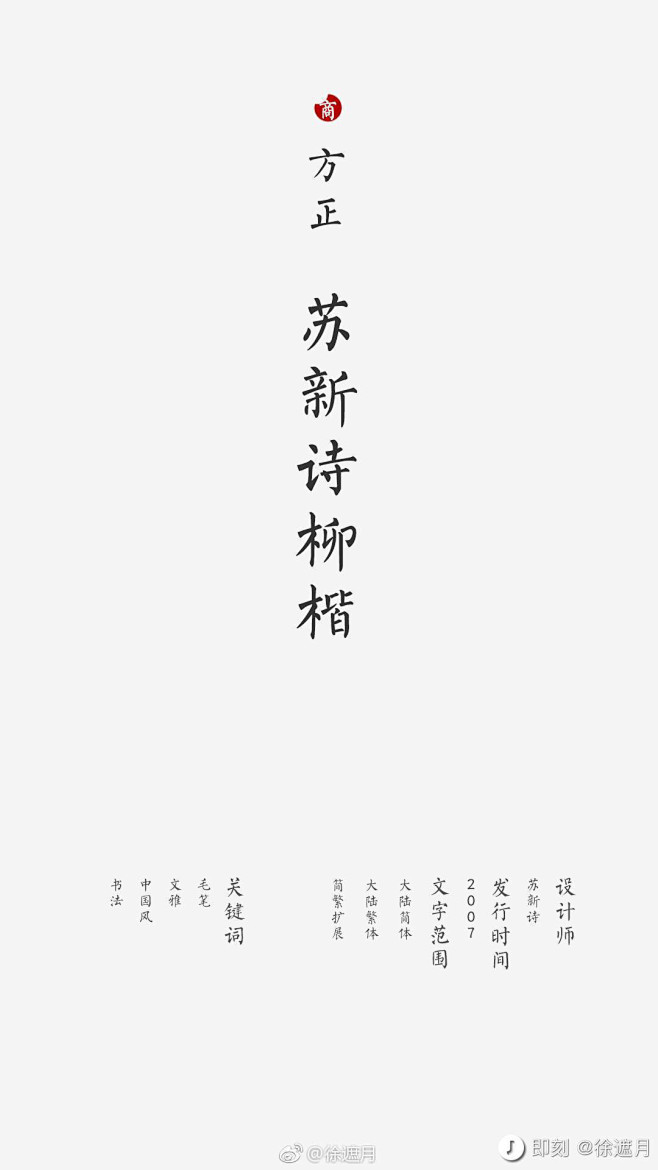 商
方正
苏新诗柳楷
设计师
苏新诗
发行时间
2007
文字范围
大陆简体
大陆繁体
简繁扩展
关键词
毛笔
文雅
中国风
书法
@徐遮月
即刻 @徐遮月